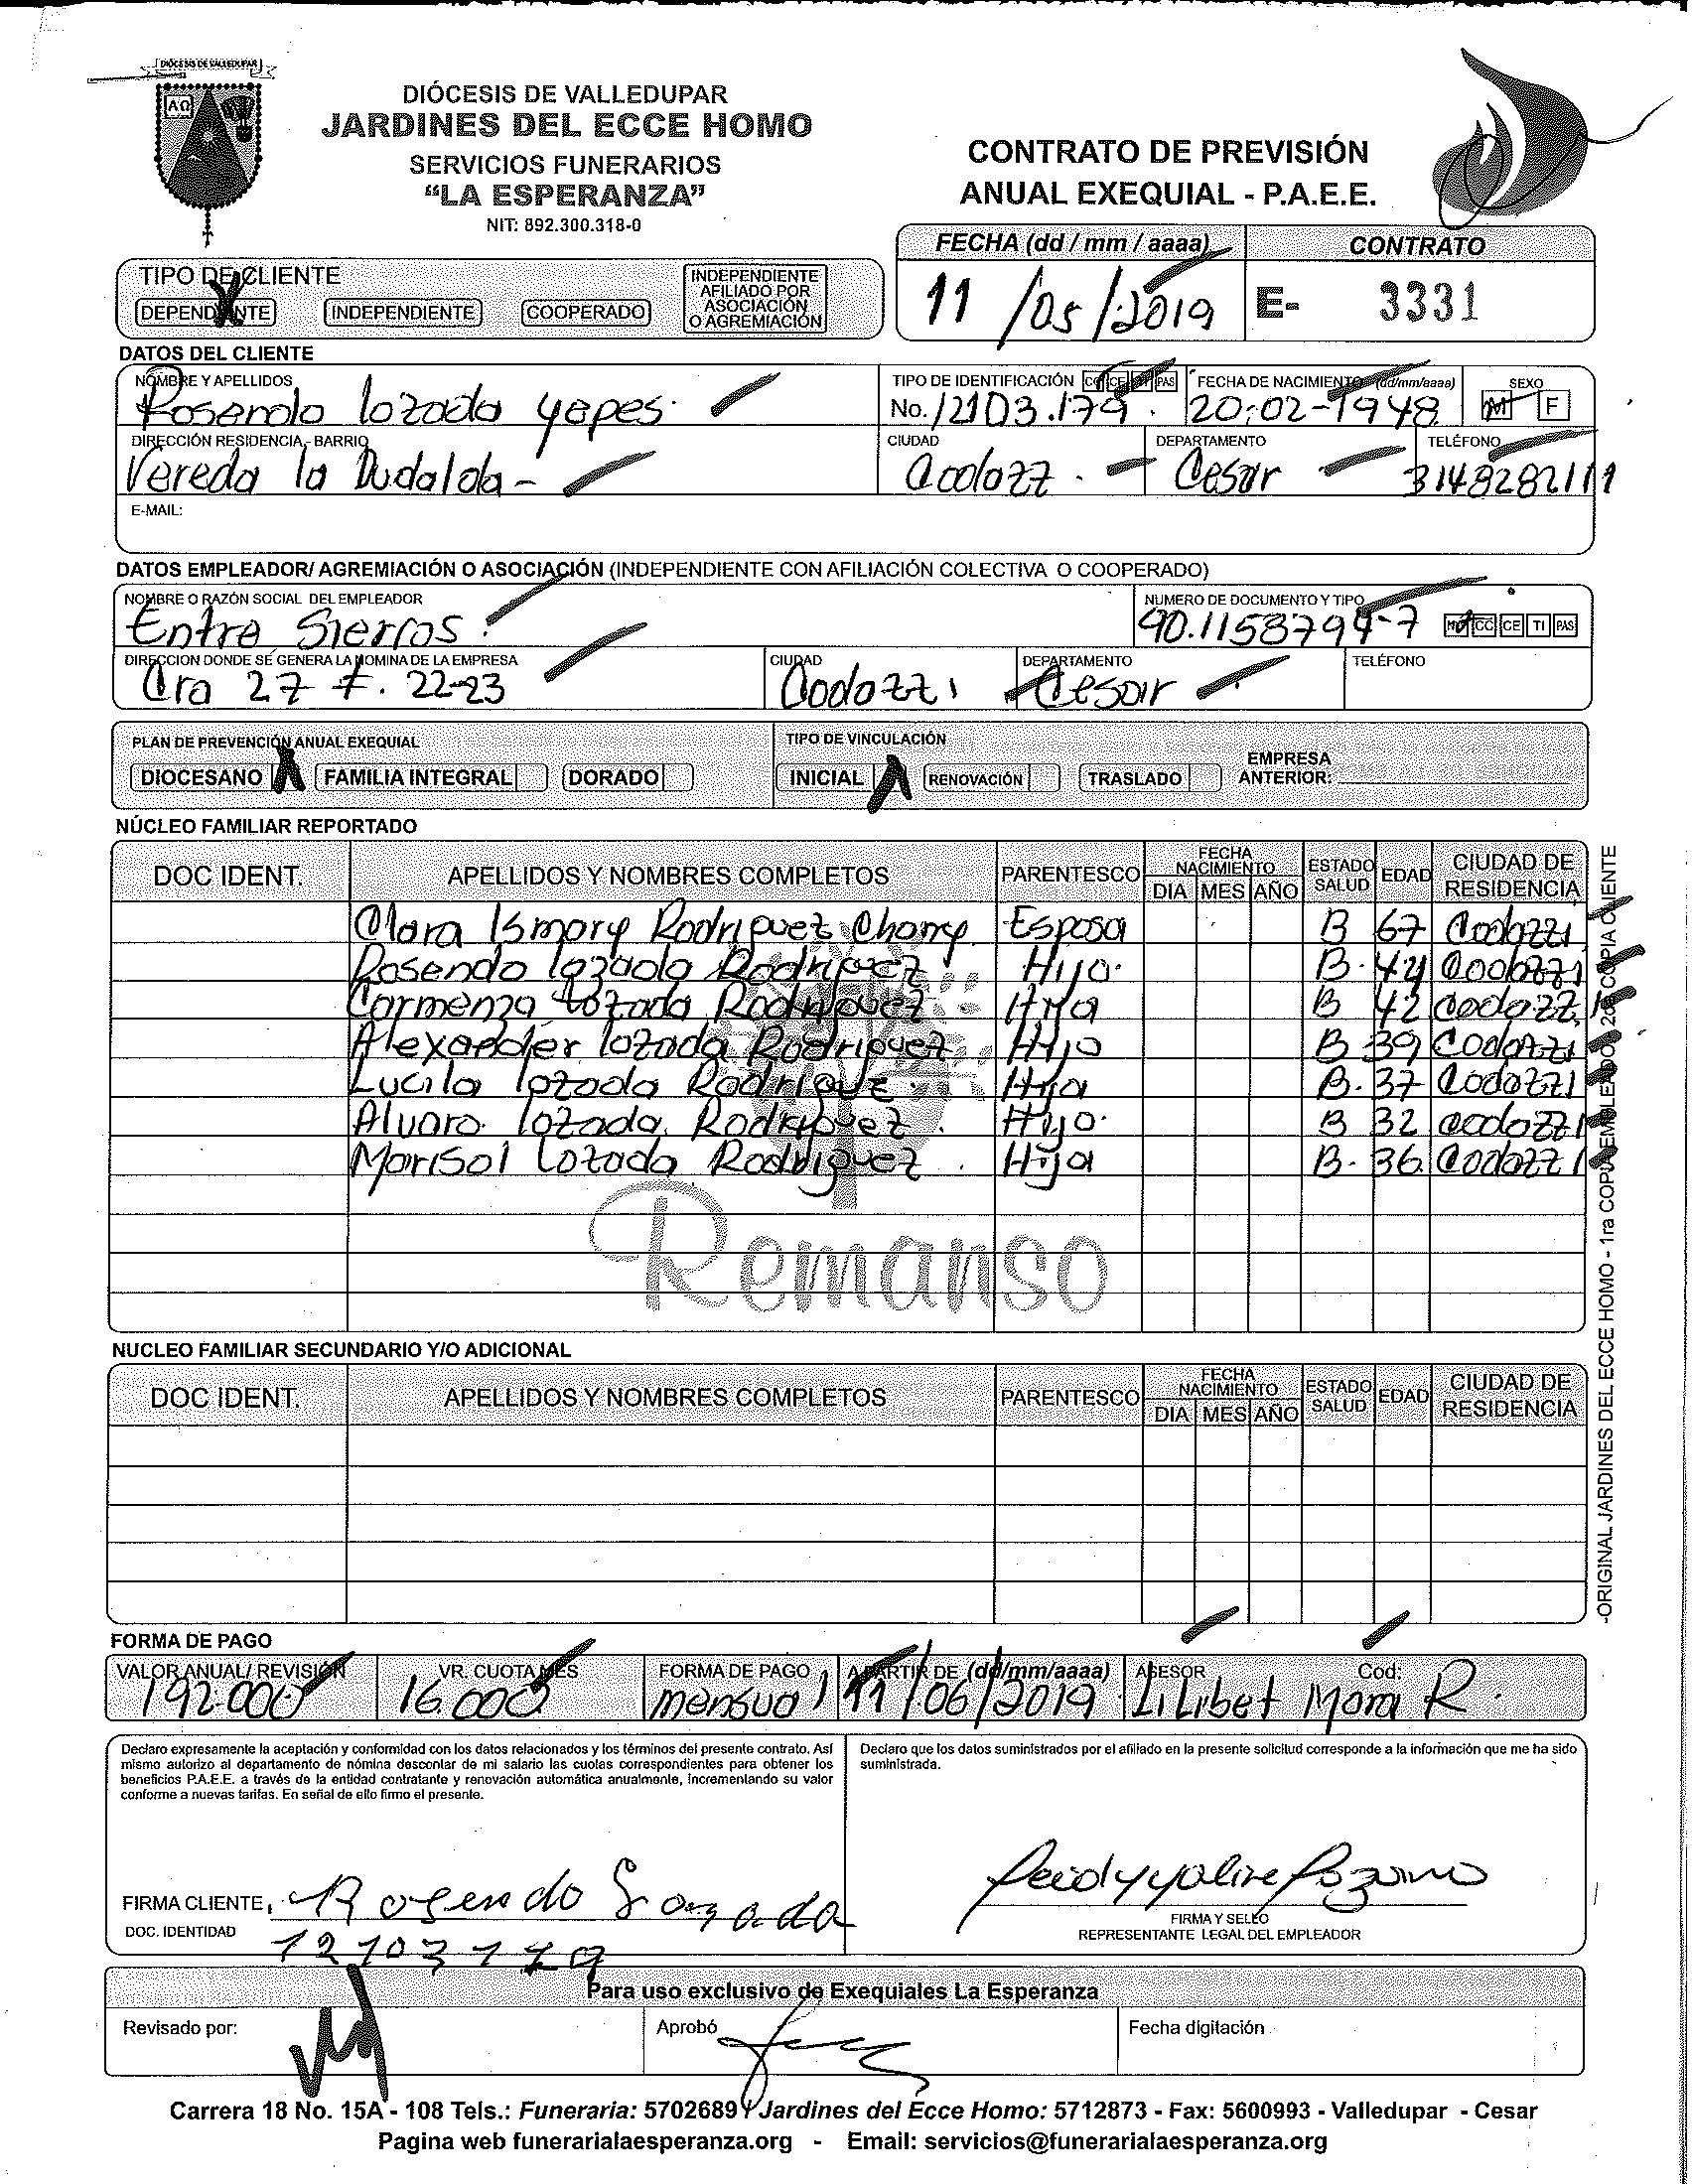 DIÓCESIS DE VALLEDUPAR
ΑΩ
DIÓCESIS DE VALLEDUPAR
JARDINES DEL ECCE HOMO
SERVICIOS FUNERARIOS
“LA ESPERANZA”
NIT: 892.300.318-0
CONTRATO DE PREVISIÓN
ANUAL EXEQUIAL - P.A.E.E.
FECHA (dd / mm / aaaa) CONTRATO
11 /05/2019 E- 3331
TIPO DE CLIENTE
DEPENDIENTE X INDEPENDIENTE COOPERADO INDEPENDIENTE AFILIADO POR ASOCIACIÓN O AGREMIACIÓN
DATOS DEL CLIENTE
NOMBRE Y APELLIDOS TIPO DE IDENTIFICACIÓN CC CE TI PAS FECHA DE NACIMIENTO (dd/mm/aaaa) SEXO
Rosendo lozada yepes. No. 12103.179. 20-02-1948 M F
DIRECCIÓN RESIDENCIA - BARRIO CIUDAD DEPARTAMENTO TELÉFONO
Vereda la Dudalda- Codazz. Cesar 3148282111
E-MAIL:
DATOS EMPLEADOR/ AGREMIACIÓN O ASOCIACIÓN (INDEPENDIENTE CON AFILIACIÓN COLECTIVA O COOPERADO)
NOMBRE O RAZÓN SOCIAL DEL EMPLEADOR NUMERO DE DOCUMENTO Y TIPO
Entre Sierras. 90.1158794-7 CC CE TI PAS
DIRECCION DONDE SE GENERA LA NOMINA DE LA EMPRESA CIUDAD DEPARTAMENTO TELÉFONO
Cra 27 #. 22-23 Codazzi Cesar
PLAN DE PREVENCIÓN ANUAL EXEQUIAL TIPO DE VINCULACIÓN
DIOCESANO X FAMILIA INTEGRAL DORADO INICIAL X RENOVACIÓN TRASLADO EMPRESA ANTERIOR:
NÚCLEO FAMILIAR REPORTADO
DOC IDENT. APELLIDOS Y NOMBRES COMPLETOS PARENTESCO FECHA NACIMIENTO DIA MES AÑO ESTADO SALUD EDAD CIUDAD DE RESIDENCIA
Clara Ismory Rodriguez Esposa B 67 Codazzi
Rosendo lozada Rodriguez Hijo. B. 44 Codazzi
Carmenza Lozada Rodriguez Hija B 42 Codazzi
Alexander lozada Rodriguez Hijo B 39 Codazzi
Lucila lozada Rodriguez Hija B. 37 Codazzi
Alvaro lozada Rodriguez. Hijo. B 32 Codazzi
Marisol Lozada Rodriguez. Hija B. 36 Codazzi
Remanso
NUCLEO FAMILIAR SECUNDARIO Y/O ADICIONAL
DOC IDENT. APELLIDOS Y NOMBRES COMPLETOS PARENTESCO FECHA NACIMIENTO DIA MES AÑO ESTADO SALUD EDAD CIUDAD DE RESIDENCIA
-ORIGINAL JARDINES DEL ECCE HOMO - 1ra COPIA EMPLEADOR 2da COPIA CLIENTE
FORMA DE PAGO
VALOR ANUAL/ REVISIÓN VR. CUOTA MES FORMA DE PAGO A PARTIR DE (dd/mm/aaaa) ASESOR Cod:
192.000 16.000 mensual 11/06/2019 LiLibet Mora R.
Declaro expresamente la aceptación y conformidad con los datos relacionados y los términos del presente contrato. Así
mismo autorizo al departamento de nómina descontar de mi salario las cuotas correspondientes para obtener los
beneficios P.A.E.E. a través de la entidad contratante y renovación automática anualmente, incrementando su valor
conforme a nuevas tarifas. En señal de ello firmo el presente.
Declaro que los datos suministrados por el afiliado en la presente solicitud corresponde a la información que me ha sido
suministrada.
FIRMA CLIENTE. Rosendo Lozada
DOC. IDENTIDAD 12103179
FIRMA Y SELLO
REPRESENTANTE LEGAL DEL EMPLEADOR
Para uso exclusivo de Exequiales La Esperanza
Revisado por: Aprobó Fecha digitación
Carrera 18 No. 15A - 108 Tels.: Funeraria: 5702689 Y Jardines del Ecce Homo: 5712873 - Fax: 5600993 - Valledupar - Cesar
Pagina web funerarialaesperanza.org - Email: servicios@funerarialaesperanza.org